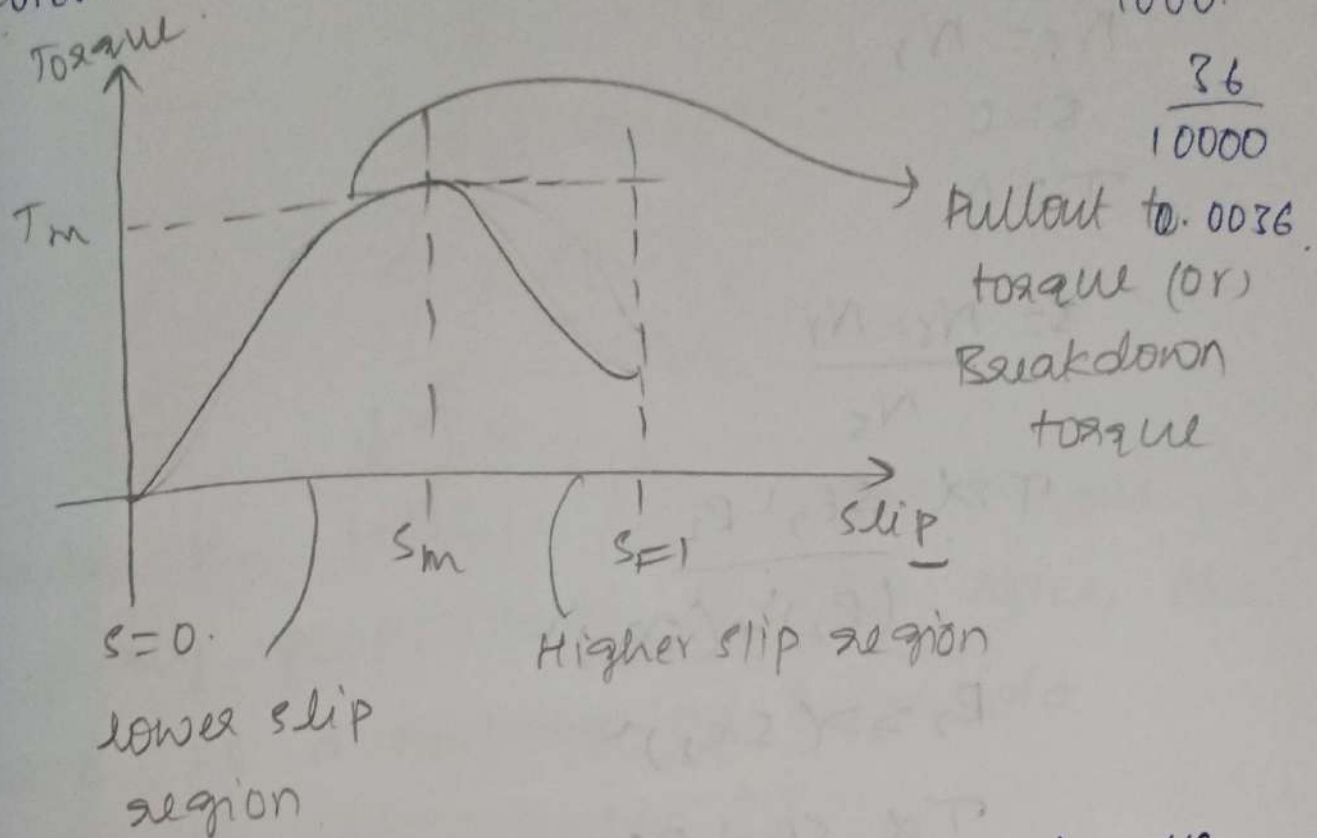 Torque
1000.
36
10000
Tm
Pullout to. 0036
torque (or)
Breakdown
torque
Sm
S=1
slip
S=0.
Higher slip region
lower slip
region